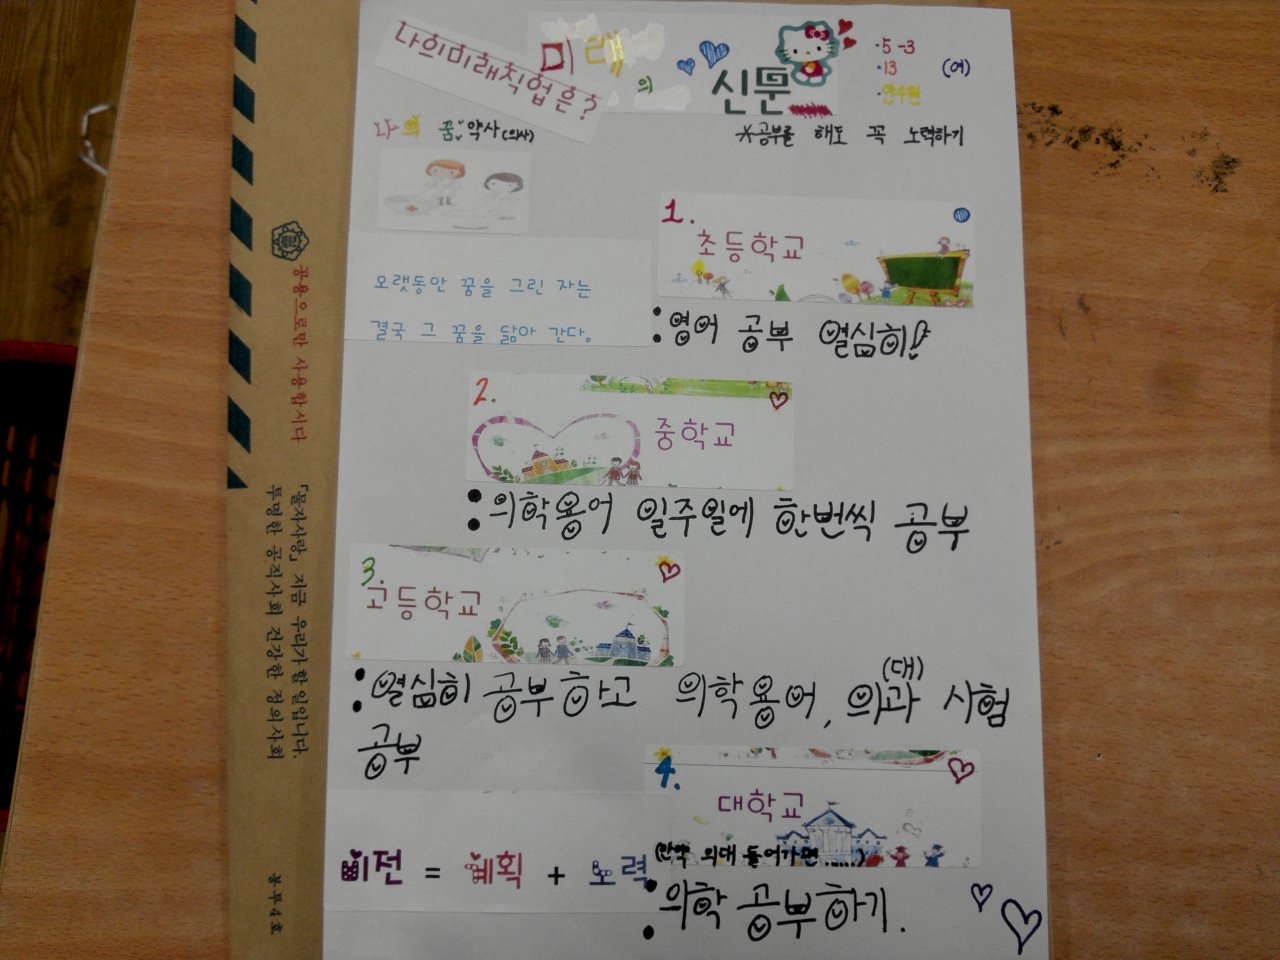 나의미래직업은?
미래의 신문
·5-3
·13 (여)
나의 꿈: 약사(의사)
*공부를 해도 꼭 노력하기
오랫동안 꿈을 그린 자는
결국 그 꿈을 닮아 간다.
1. 초등학교
:영어 공부 열심히!
2. 중학교
:의학용어 일주일에 한번씩 공부
3. 고등학교
:열심히 공부하고 의학용어, 의과(대) 시험
공부
4. 대학교
(만약 의대 들어가면......)
:의학 공부하기.
비전 = 계획 + 노력
공용으로만 사용합시다
「물자사랑」 지금 우리가 할 일입니다.
투명한 공직사회 건강한 정의사회
봉투4호